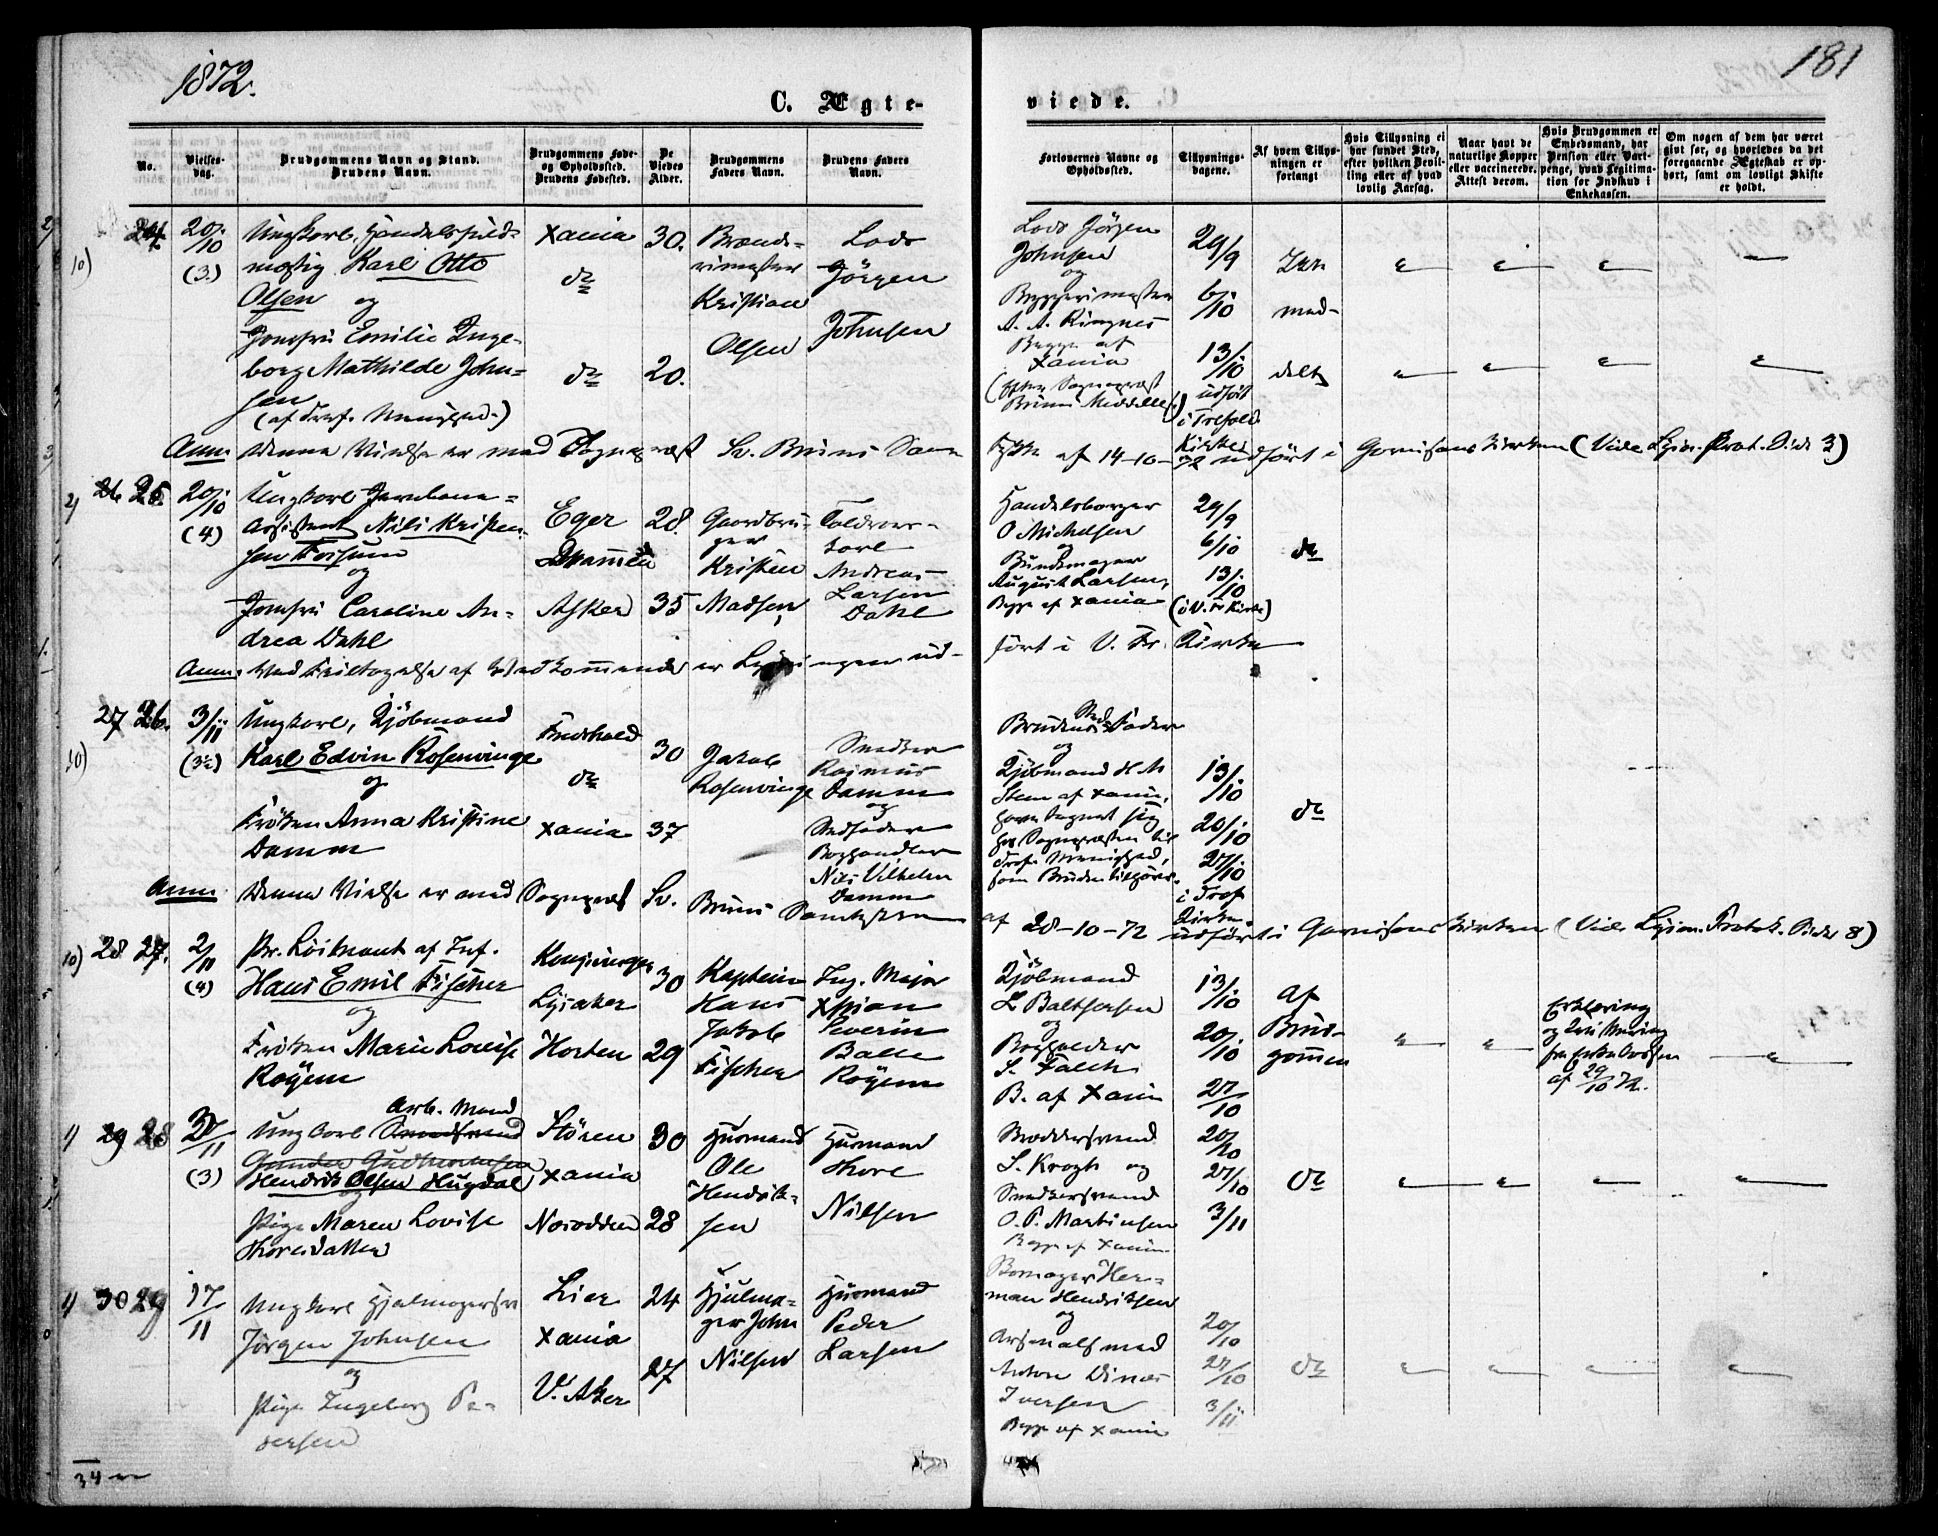 1872.
181
C. Ægte-
viede.
No.
Vielses-
dag.
Brudgommens Navn og Stand.
Brudens Navn.
Brudgommens Føde-
og Opholdssted.
Brudens Fødested.
De
Viedes
Alder.
Brudgommens
Faders Navn.
Brudens Faders
Navn.
Forlovernes Navne og
Opholdssted.
Tillysnings-
dagene.
Af hvem Tillys-
ningen er
forlangt
Hvis Tillysning ei
har fundet Sted,
efter hvilken Bevil-
ling eller af hvad
lovlig Aarsag.
Naar havt de
naturlige Kopper
eller vaccinerede.
Attest derom.
Hvis Brudgommen er
Embedsmand, har
Pension eller Vart-
penge, hvad Legitima-
tion for Indskud i
Enkekassen.
Om nogen af dem har været
givt før, og hvorledes da det
foregaaende Ægteskab er op-
hørt, samt om lovligt Skifte
er holdt.
24.
20/10
(3)
Ungkarl, Handelsfuld-
mægtig Karl Otto
Olsen og
Jomfru Emilie Inge-
borg Mathilde John-
sen
(af Tref. Menighed.)
Xania
do
do
30.
20.
Brænde-
rimester
Kristian
Olsen
Lods
Jörgen
Johnsen
Lods Jörgen
Johnsen
og
Bryggerimester
A. A. Ringnes
Begge af
Xania
(efter Sognepræst
Bruns Meddelelse)
29/9
6/10
13/10
udført
i Trefold.
Kirken
Den
med-
delt
Anm. Denne Vielse er med Sognepræst Sv. Bruns Sam-
tykke af 14-10-72 udført i Garnisonskirken (Vide Lysn. Prot. Side 3)
26 25.
20/10
(4)
Ungkarl Jernbane-
assistent Nils Kristen-
sen Fossum
og
Jomfru Caroline An-
drea Dahl
Eger
Drammen
Asker
28.
35
Gaardbru-
ger
Kristen
Madsen
Toldvæ-
karl
Andreas
Larsen
Dahl
Handelsborger
O Michelsen
og
Bundtmager
August Larsen,
Begge af Xania
29/9
6/10
13/10
(i V. Fr Kirke)
do
Anm. Med Tilladelse af Vedkommende er Lysningen ud-
ført i V. Fr. Kirke
27 26.
3/11
(3½)
Ungkarl, Kjöbmand
Karl Edvin Rosenvinge
og
Fröken Anna Kristine
Damm
Fredshald
do
Xania
30
37
Jakob
Rosenvinge
Snedker
Rasmus
Damm
og
Stedfader
Boghandler
Nils Vilhelm
Damm
Brudens Stedfader
og
Kjöbmand H. M
Steen af Xania,
have tegnet sig
hos Sognepræsten til
Tref. Menighed,
som Bruden tilhører.
13/10
20/10
27/10
i Tref
Kirke
do
Anm. Denne Vielse er med Sognepræst Sv. Bruns Samtykke
af 28-10-72 udført i Garnisonskirken (Vide Lysn. Protok. Side 8)
28 27.
2/11
(4)
Pr. Löitnant af Inf.
Hans Emil Fischer
og
Fröken Marie Lovise
Rögem
Kongsvinger
Lysaker
Horten
30
29
Kaptein
Hans
Jakob
Fischer
Ing. Major
Xstian
Severin
Balle
Rögem
Kjöbmand
L Baltzersen
og
Bogholder
S. Falch
B. af Xania
13/10
20/10
27/10
af
Brud-
gommen
Erklæring
og Qvittering
fra Enkekassen
af 29/10 72.
29 28
3/11
(3)
Arb. Mand
Ungkarl Snedsvend
Gunder Gudmundsen
Hendrik Olsen Hugdal
og
Pige Maren Lovise
Thoresdatter
Stören
Xania
Næsodden
30
28
Husmand
Ole
Hendrik-
sen
Husmand
Thore
Nilsen
Böddersvend
S. Krogh og
Snedkersvend
O. P. Martinsen
Begge af Xania
20/10
27/10
3/11
do
30 29
17/11
Ungkarl Hjulmagersv
Jörgen Johnsen
og
Pige Ingeborg Pe-
dersen
Lier
Xania
V. Aker
24
27
Hjulma-
ger John
Nilsen
Husmand
Peder
Larsen
Her-
man Hendriksen
og
Arsenalsmed
Anton Dines
Iversen
Begge af Xania
20/10
27/10
3/11
do
34